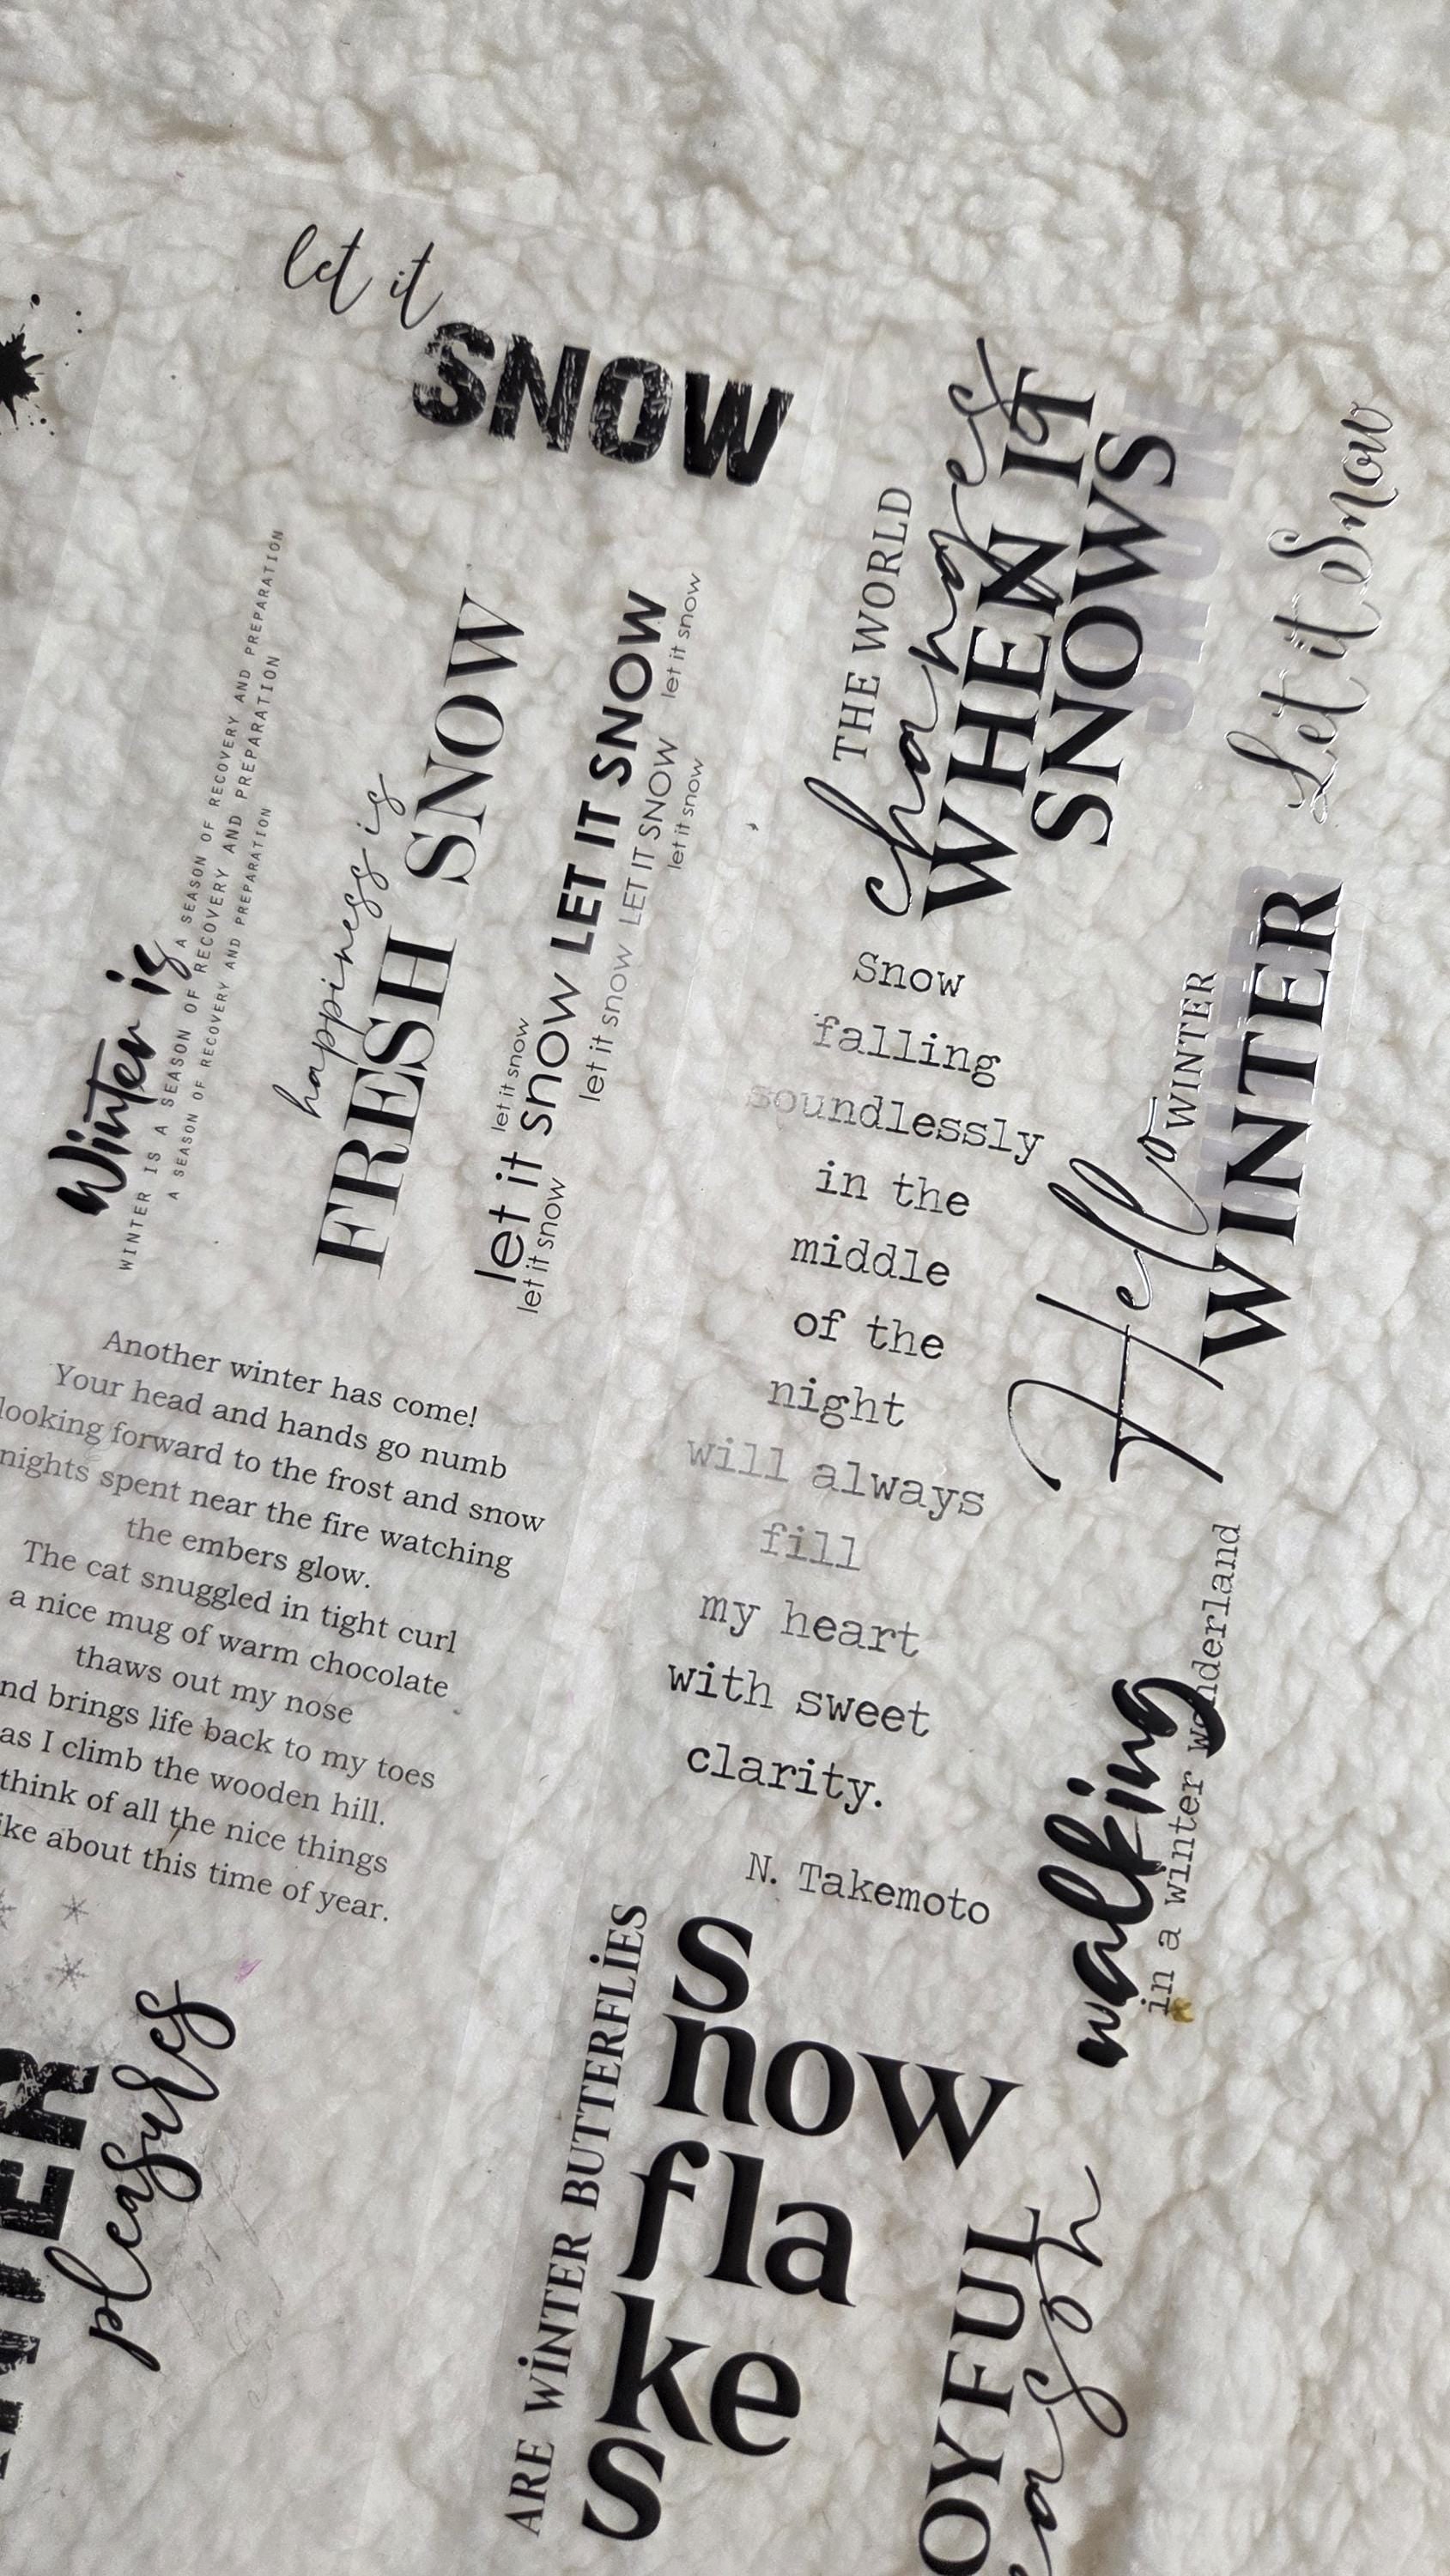 let it
SNOW
Winter is
A SEASON OF RECOVERY AND PREPARATION
WINTER IS A SEASON OF RECOVERY AND PREPARATION
A SEASON OF RECOVERY AND PREPARATION
happiness is
FRESH SNOW
let it snow let it snow
let it snow LET IT SNOW
let it snow let it snow LET IT SNOW LET IT SNOW let it snow
THE WORLD
changes
WHEN IT
SNOWS
SNOW
Let it Snow
Snow
falling
soundlessly
in the
middle
of the
night
will always
fill
my heart
with sweet
clarity.
N. Takemoto
Hello WINTER
WINTER
Another winter has come!
Your head and hands go numb
looking forward to the frost and snow
nights spent near the fire watching
the embers glow.
The cat snuggled in tight curl
a nice mug of warm chocolate
thaws out my nose
nd brings life back to my toes
as I climb the wooden hill.
think of all the nice things
ike about this time of year.
walking
in a winter wonderland
pleasures
snow
fla
ke
s
ARE WİNTER BUTTERFLİES
OYFUL